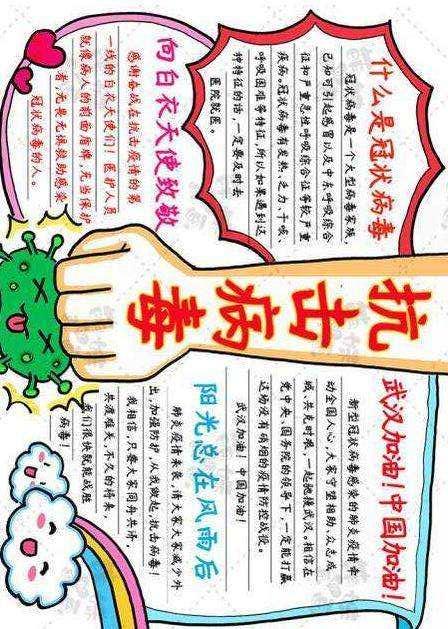 什么是冠状病毒
冠状病毒是一个大型病毒家族,
已知可引起感冒以及中东呼吸综合
征和严重急性呼吸综合征等较严重
疾病。冠状病毒有发热、乏力、干咳、
呼吸困难等特征,所以如果遇到这
种特征的话,一定要及时去
医院就医。
向白衣天使致敬
感谢奋战在抗击疫情的第
一线的白衣天使们!医护人员
就像病人的前面盾牌,充当保护
者,无畏无惧救助感染
冠状病毒的人。
抗击病毒
武汉加油!中国加油!
新型冠状病毒感染的肺炎疫情牵
动全国人心,大家守望相助、众志成
城、共克时艰,一起驰援武汉。相信在
党中央、国务院的领导下,一定能打赢
这场没有硝烟的疫情防控战役。
武汉加油!中国加油!
阳光总在风雨后
肺炎疫情未,请大家大减少外
出,加强防护,从我做起,抗击病毒!
我相信,只要大家同舟共济,
共渡难关,不久的将来,
我们很快就能战胜
病毒!